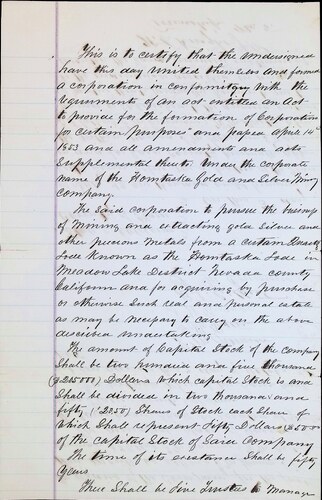 This is to certify that the undersigned
have this day united themselves and formed
a corporation in conformity with the
requirements of an act entitled an Act
to provide for the formation of Corporations
for certain purposes" and passed April 14th
1853 and all amendments and acts
Supplemental thereto under the corporate
name of the Homtaska Gold and Silver Mining
Company.
The Said corporation to pursue the business
of Mining and extracting gold Silver and
other precious Metals from a certain
Lode known as the Homtaska Lode in
Meadow Lake District Nevada County
California and for acquiring by purchase
or otherwise Such real and personal estate
as may be necessary to carry on the above
described undertaking.
The amount of Capital Stock of the company
Shall be two hundred and five thousand
Dollars which capital Stock is and
Shall be divided in two thousand and
fifty (2050) Shares of Stock each Share of
which Shall represent Fifty Dollars ($5000
of the capital Stock of Said Company
The time of its existance Shall be fifty
Years
There Shall be Five Trustees to Manage